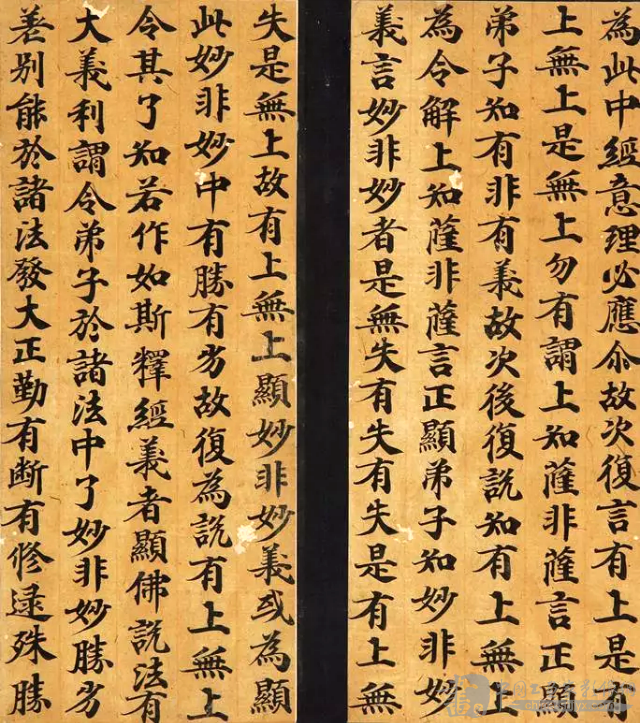 為此中經意理必應尒故次復言有上是有
上無上是無上勿有謂上知薩非薩言正顯
弟子知有非有義故次後復說知有上無上
為令解上知薩非薩言正顯弟子知妙非妙
義言妙非妙者是無失有失有失是有上無
失是無上故有上無上顯妙非妙義或為顯
此妙非妙中有勝有劣故復為說有上無上
令其了知若作如斯釋經義者顯佛說法有
大義利謂令弟子於諸法中了妙非妙勝劣
差別能於諸法發大正勤有断有修逮殊勝